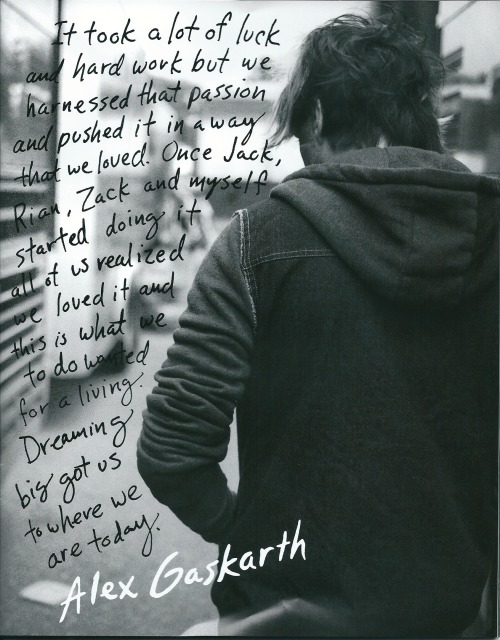 It took a lot of luck
and hard work but we
harnessed that passion
and pushed it in a way
that we loved. Once Jack,
Rian, Zack and myself
started doing it
all of us realized
we loved it and
this is what we
to do wanted
for a living.
Dreaming
big got us
to where we
are today.
Alex Gaskarth